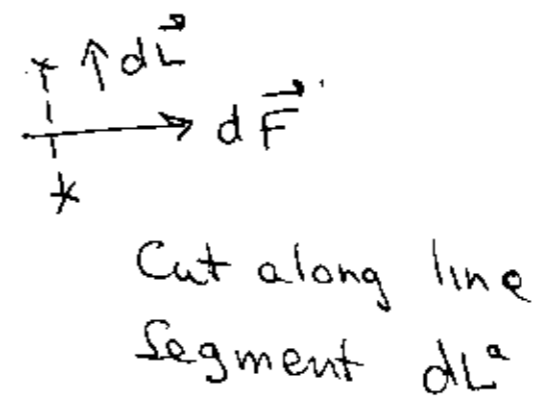 dL⃗
dF⃗
Cut along line
Segment dLᵃ